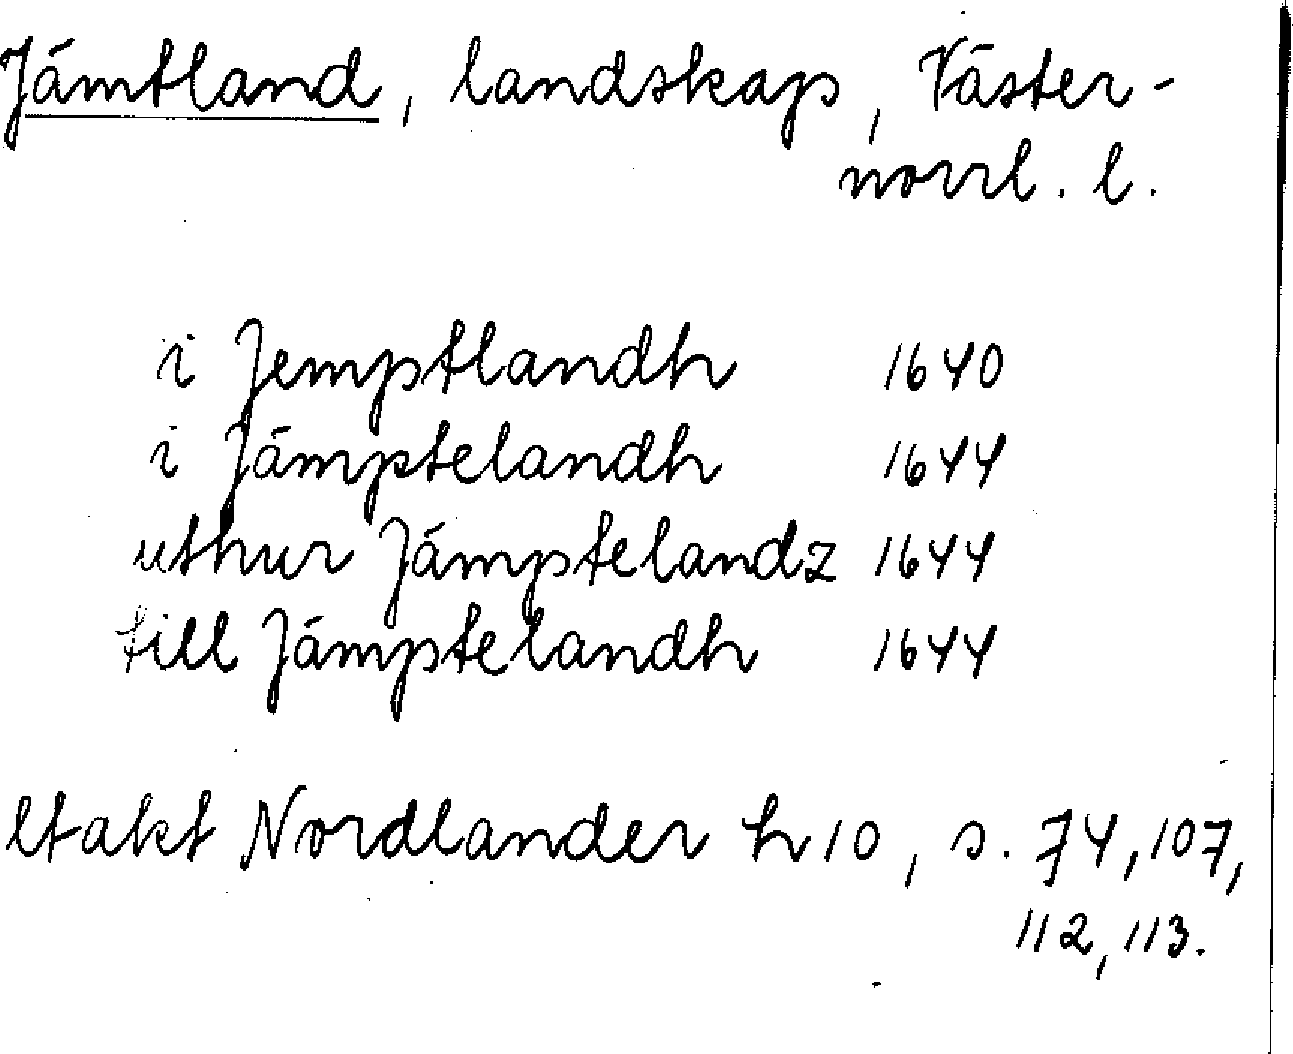 Jämtland, landskap, Väster-
norrl. l.
i Jemptlandh 1640
i Jämptelandh 1644
uthur Jämptelandz 1644
till Jämptelandh 1644
ltakt Nordlander h 10, s. 74, 107,
112, 113.